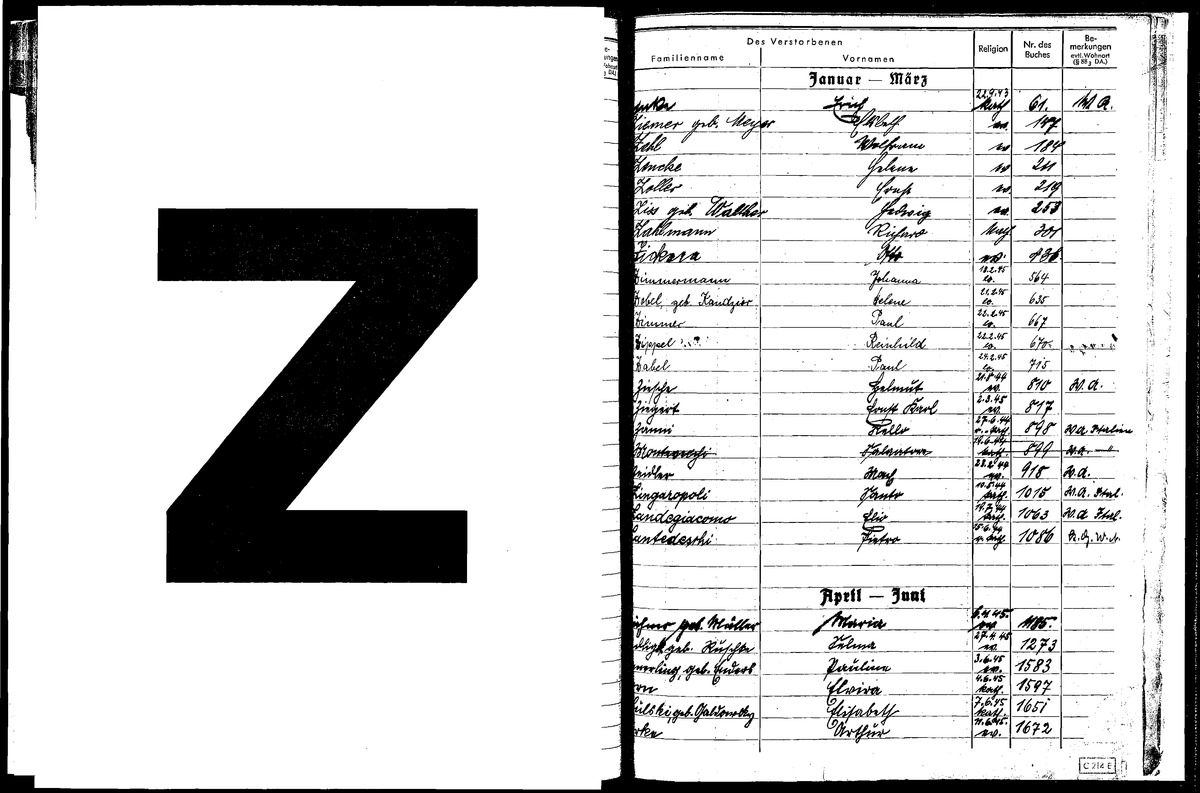 Z
e-
ungen
Des Verstorbenen
Familienname Vornamen Religion Nr. des Buches Be-merkungen evtl. Wohnort (§ 88 3 DA.)
Januar — März
Erich 22.9.43 kath 61. W.a.
Ziemer geb. Meyer ev. 147
Zehl Wolfram ev 184
Zencke Helene ev 211
Zoller Ernst ev. 219
Ziss geb. Walther Hedwig ev. 253
Zahlmann Richard kath 301
Otto ev. 436
Zimmermann Johanna 18.2.45 ev. 564
Zebel, geb. Kandzior Helene 21.2.45 ev. 635
Zimmer Paul 22.2.45 ev. 667
Zippel Reinhild 22.2.45 ev. 670
Zabel Paul 24.2.45 ev. 715
Zusche Helmut 21.8.44 ev. 810 W.a.
Ziegert Ernst Karl 2.3.45 ev. 817
Zanni Nello 27.6.44 898 W.a. Italien
Salvatore 19.6.44 kath 899 W.a. — " —
eidler 918 W.a.
Zingaropoli Santo kath. 1015 W.a. Ital.
Zandegiacomo Elio 19.7.44 kath. 1063 W.a. Ital.
antedeschi Pietro 15.6.44 1086
April — Juni
geb. Müller Maria 6.4.45. ev. 1185.
geb. Ruschke Selma 27.4.45 ev. 1273
merling, geb. Enders Pauline 3.6.45 ev. 1583
orn Elvira 4.6.45 kath. 1597
Elisabeth 7.6.45 kath. 1651
rke Arthur 11.6.45. ev. 1672
C 214 E